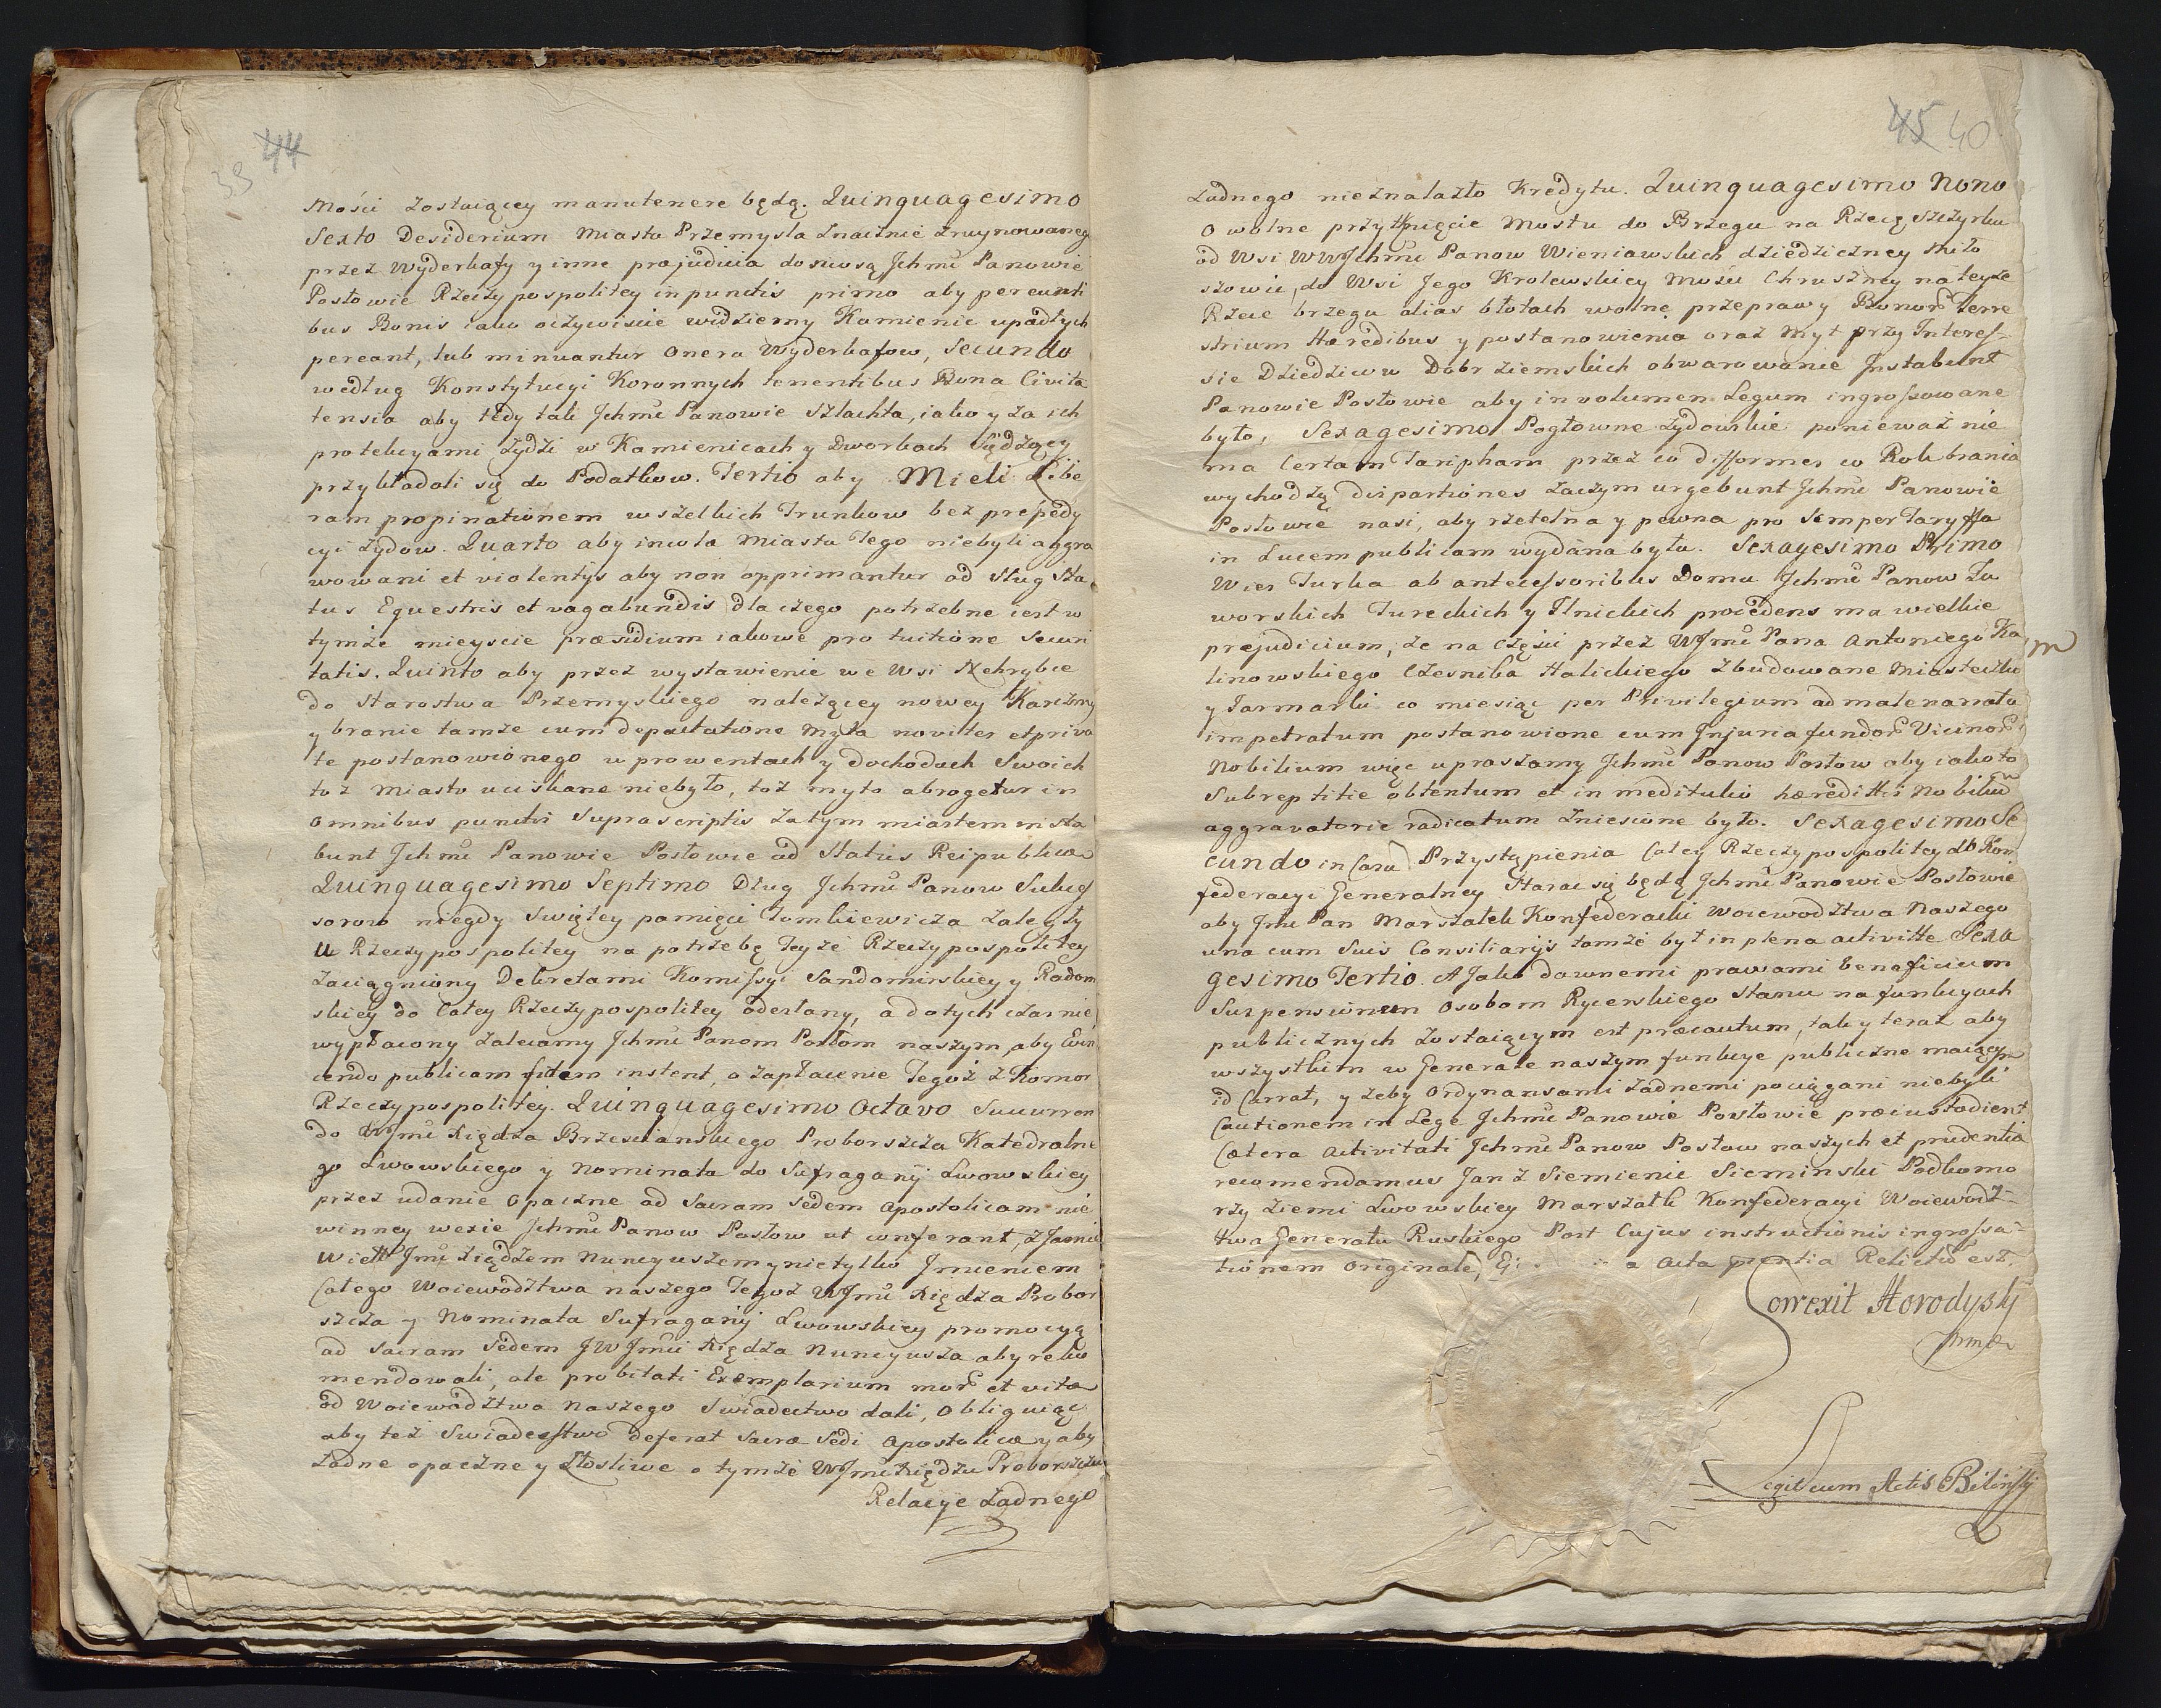 39 44
Mości zostaiącey manutenere będą. Quinquagesimo
Sexto Desiderium Miasta Przemysla znacznie zruynowaneg
przez Wyderkafy y inne præjudicia doniosą Jchmć Panowie
Posłowie Rzeczypospolitey in punctis primo aby pereunti
bus Bonis iako oczywiscie widziemy Kamienic upadłych
pereant, lub minuantur onera Wyderkafow, Secundo
według Konstytucyi Koronnych tenentibus Bona Civita
tensia aby tedy tak Jchmć Panowie Szlachta, iako y za ich
protekcyami Zydzi w Kamienicach y Dworkach Siędzący
przykładali się do Podatkow. Tertio aby Mieli Libe
ram propinationem wszelkich Trunkow bez prepedy
cyi Zydow. Quarto aby incolæ Miasta Tego niebyli aggra
wowani et violentijs aby non opprimantur od Sług Sta
tus Equestris et vagabundis dla czego potrzebne iest w
tymże mieyscie præsidium iakowe pro tuitione Securi
tatis. Quinto aby przez wystawienie we Wsi Nehrybce
do Starostwa Przemyskiego należącey nowey Karczmy
y branie tamże cum depactatione Myta noviter et priva
te postanowionego w prowentach y dochodach Swoich
toż Miasto uciskane niebyło, toż myto abrogetur in
omnibus punctis Suprascriptis za tym miastem insta
bunt Jchmć Panowie Posłowie ad Status Reipublicæ
Quinquagesimo Septimo Dług Jchmć Panow Sukceſ
sorow niegdy Swiętey pamięci Tomkiewicza zaległy
u Rzeczypospolitey na potrzebę Teyże Rzeczypospolitey
zaciągniony Dekretami Komiſsyi Sandomirskiey y Radom
skiey do Całey Rzeczypospolitey odesłany, a dotychczas nie
wypłacony zalecamy Jchmć Panom Posłom naszym, aby Evin
cendo publicam fidem instent, o zapłacenie Tegoż z Komor
Rzeczypospolitey. Quinquagesimo Octavo Succurren
do WJmć Xiędza Brzescianskiego Proboszcza Katedralne
go Lwowskiego y Nominata do Sufraganij Lwowskiey
przez udanie opaczne ad Sacram Sedem Apostolicam nie
winney wexie Jchmć Panow Posłow ut conferant, z Jasnie
Wielł Jmć Xiędzem Nuncyuszem y nietylko Jmieniem
Całego Woiewodztwa naszego Tegoż WJmć Xiędza Probos
szcza y Nominata Sufraganij Lwowskiey promocyą
ad Sacram Sedem JWJmci Xiędza Nuncyusza aby reko
mendowali, ale probitati Exemplarium mor et vitæ
od Woiewodztwa Naszego Swiadectwo dali, obliguiąc
aby też Swiadectwo deferat Sacræ Sedi Apostolicæ y aby
żadne opaczne y złosliwe o tymże WJmć Xiędzu Proboszczu
Relacye żadnego
45 40
żadnego nieznalazło Kredytu. Quinquagesimo Nono
O wolne przytknięcie Mostu do Brzegu na Rzecę Szczyrku
od Wsi WWJchmć Panow Wieniawskich dziedziczney Miło
szowic, do Wsi Jego Krolewskiey Mości Chruszney na teyże
Rzece brzegu alias błotach wolne przeprawy Bonor Terre
strium Hæredibus y postanowienia oraz Myt przy Intereſ-
sie Dziedzicow Dobr ziemskich obwarowanie Jnstabunt
Panowie Posłowie aby in volumen Legum ingroſsowane
było, Sexagesimo Pogłowne Żydowskie ponieważ nie
ma Certam Taripham przez co difformes co Rok brania
wychodzą dispartiones zaczym urgebunt Jchmć Panowie
Posłowie nasi, aby rzetelna y pewna pro Semper Taryffa
in Lucem publicam wydana była. Sexagesimo Primo
Wies Turka ab anteceſsoribus Domu Jchmć Panow Ja
worskich Tureckich y Ilnickich procedens ma wielkie
prejudicium, że na Części przez WJmć Pana Antoniego Ka
linowskiego Czesnika Halickiego zbudowane Miasteczko
y Jarmarki co miesiąc per Privilegium ad male narrata
impetratum postanowione cum Jnjuria fundor Vicinor
Nobilium więc upraszamy Jchmć Panow Posłow aby iako to
Subreptitie obtentum et in meditulio hæredittis Nobiliu
aggravatorie radicatum zniesione było. Sexagesimo Se
cundo in Casu Przystąpienia Całey Rzeczypospolitey do Kon
federacyi Generalney Starac się będą Jchmć Panowie Posłowie
aby Jmć Pan Marszałek Konfederacki Woiewodztwa Naszego
una cum Suis Consiliarijs tamże był in plena activitte Sexa
gesimo Tertio. A Jako dawnemi prawami beneficium
Suspensionum Osobom Rycerskiego Stanu na funkcyach
publicznych zostaiącym est præcautum, tak y teraz aby
wszystkim w Generale naszym funkcye publiczne maiącym
id Currat, y żeby Ordynansami żadnemi pociągani niebyli
Cautionem in Lege Jchmć Panowie Posłowie præcustodient
Cætera Activitati Jchmć Panow Posłow naszych et prudentiæ
recomendamus Jan z Siemienia Siemiński Podkomo
rzy Ziemi Lwowskiey Marszałk Konfederacyi Woiewodz-
twa Generału Ruskiego Post Cujus instructionis ingroſsa-
tionem Originale, a Acta præntia Relictu est.
Correxit Horodyski
mp
Legit cum Actis Bilinski